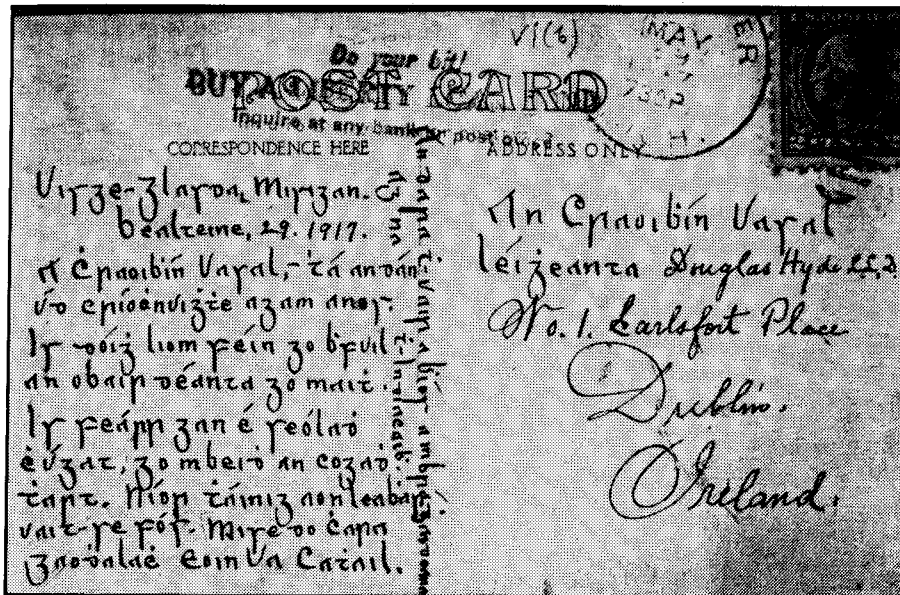 VI(6)
Do your bit!
BUY A LIBERTY
POST CARD
Inquire at any bank or post office
MAY
CORRESPONDENCE HERE
ADDRESS ONLY
Misgan.
Bealteine, 29. 1917.
A Ċraoibín Uasal,- tá an dán
úd críoċnuiġte agam anois.
Is dóiġ liom féin go ḃfuil
an obair déanta go maiṫ.
Is feárr gan é seólaḋ
ċúgat, go mbeiḋ an cogaḋ
ṫart. Níor ṫáiniġ aon leaḃar
uait-se fós. Mise do ċara
Gaoḋalaċ Eoin Ua Caṫail.
An dara t-uair a
An Craoiḃín Uasal
léiġeanta Douglas Hyde LL.D.
No. 1. Earlsfort Place
Dublin.
Ireland.